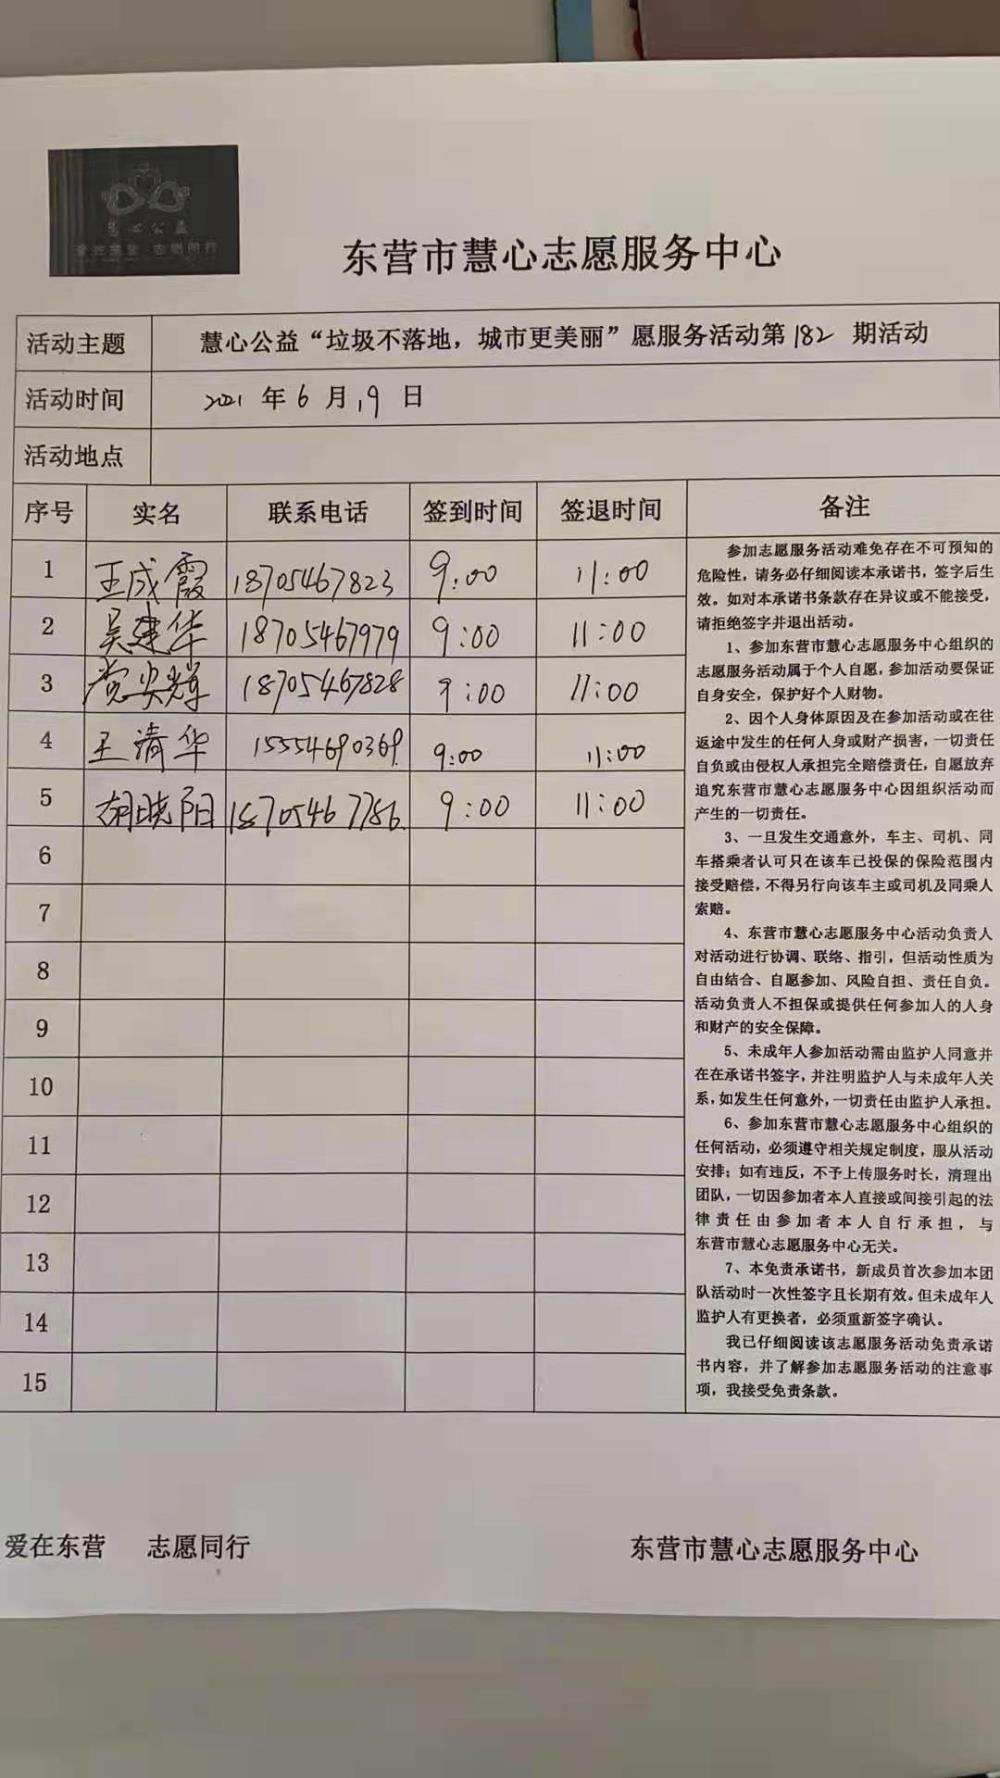 慧心公益
爱在东营·志愿同行
东营市慧心志愿服务中心
活动主题 慧心公益“垃圾不落地，城市更美丽”愿服务活动第182 期活动
活动时间 2021 年 6 月 19 日
活动地点
序号 实名 联系电话 签到时间 签退时间 备注
1 王成霞 18705467823 9:00 11:00
2 吴建华 18705467979 9:00 11:00
3 党安辉 18705467828 9:00 11:00
4 王清华 15554690369 9:00 11:00
5 胡晓阳 18705467786 9:00 11:00
6
7
8
9
10
11
12
13
14
15
参加志愿服务活动难免存在不可预知的
危险性，请务必仔细阅读本承诺书，签字后生
效。如对本承诺书条款存在异议或不能接受，
请拒绝签字并退出活动。
1、参加东营市慧心志愿服务中心组织的
志愿服务活动属于个人自愿，参加活动要保证
自身安全，保护好个人财物。
2、因个人身体原因及在参加活动或在往
返途中发生的任何人身或财产损害，一切责任
自负或由侵权人承担完全赔偿责任，自愿放弃
追究东营市慧心志愿服务中心因组织活动而
产生的一切责任。
3、一旦发生交通意外，车主、司机、同
车搭乘者认可只在该车已投保的保险范围内
接受赔偿，不得另行向该车主或司机及同乘人
索赔。
4、东营市慧心志愿服务中心活动负责人
对活动进行协调、联络、指引，但活动性质为
自由结合、自愿参加、风险自担、责任自负。
活动负责人不担保或提供任何参加人的人身
和财产的安全保障。
5、未成年人参加活动需由监护人同意并
在在承诺书签字，并注明监护人与未成年人关
系，如发生任何意外，一切责任由监护人承担。
6、参加东营市慧心志愿服务中心组织的
任何活动，必须遵守相关规定制度，服从活动
安排；如有违反，不予上传服务时长，清理出
团队，一切因参加者本人直接或间接引起的法
律责任由参加者本人自行承担，与
东营市慧心志愿服务中心无关。
7、本免责承诺书，新成员首次参加本团
队活动时一次性签字且长期有效。但未成年人
监护人有更换者，必须重新签字确认。
我已仔细阅读该志愿服务活动免责承诺
书内容，并了解参加志愿服务活动的注意事
项，我接受免责条款。
爱在东营 志愿同行 东营市慧心志愿服务中心